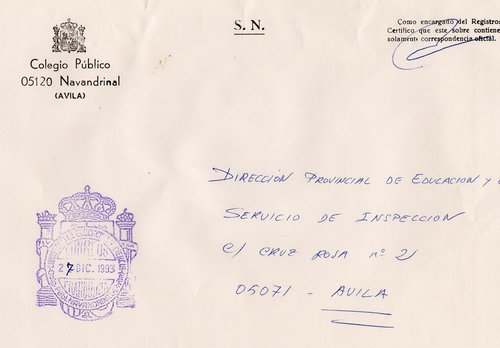 S. N.
Como encargado del Registro
Certifico que este sobre contiene
solamente correspondencia oficial.
Colegio Público
05120 Navandrinal
(AVILA)
DIRECCIÓN PROVINCIAL DE EDUCACION Y
SERVICIO DE INSPECCIÓN
C/ CRUZ ROJA nº 2
05071 - AVILA
27 DIC. 1993